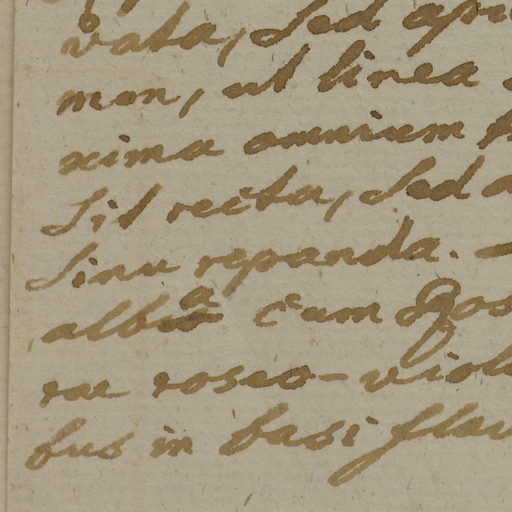 vata, sed apri
mon, ut linea
xima omnium
sit recta, sed
sinu repanda. —
alba cum Ros
rae roseo-viol
bus in basi flav